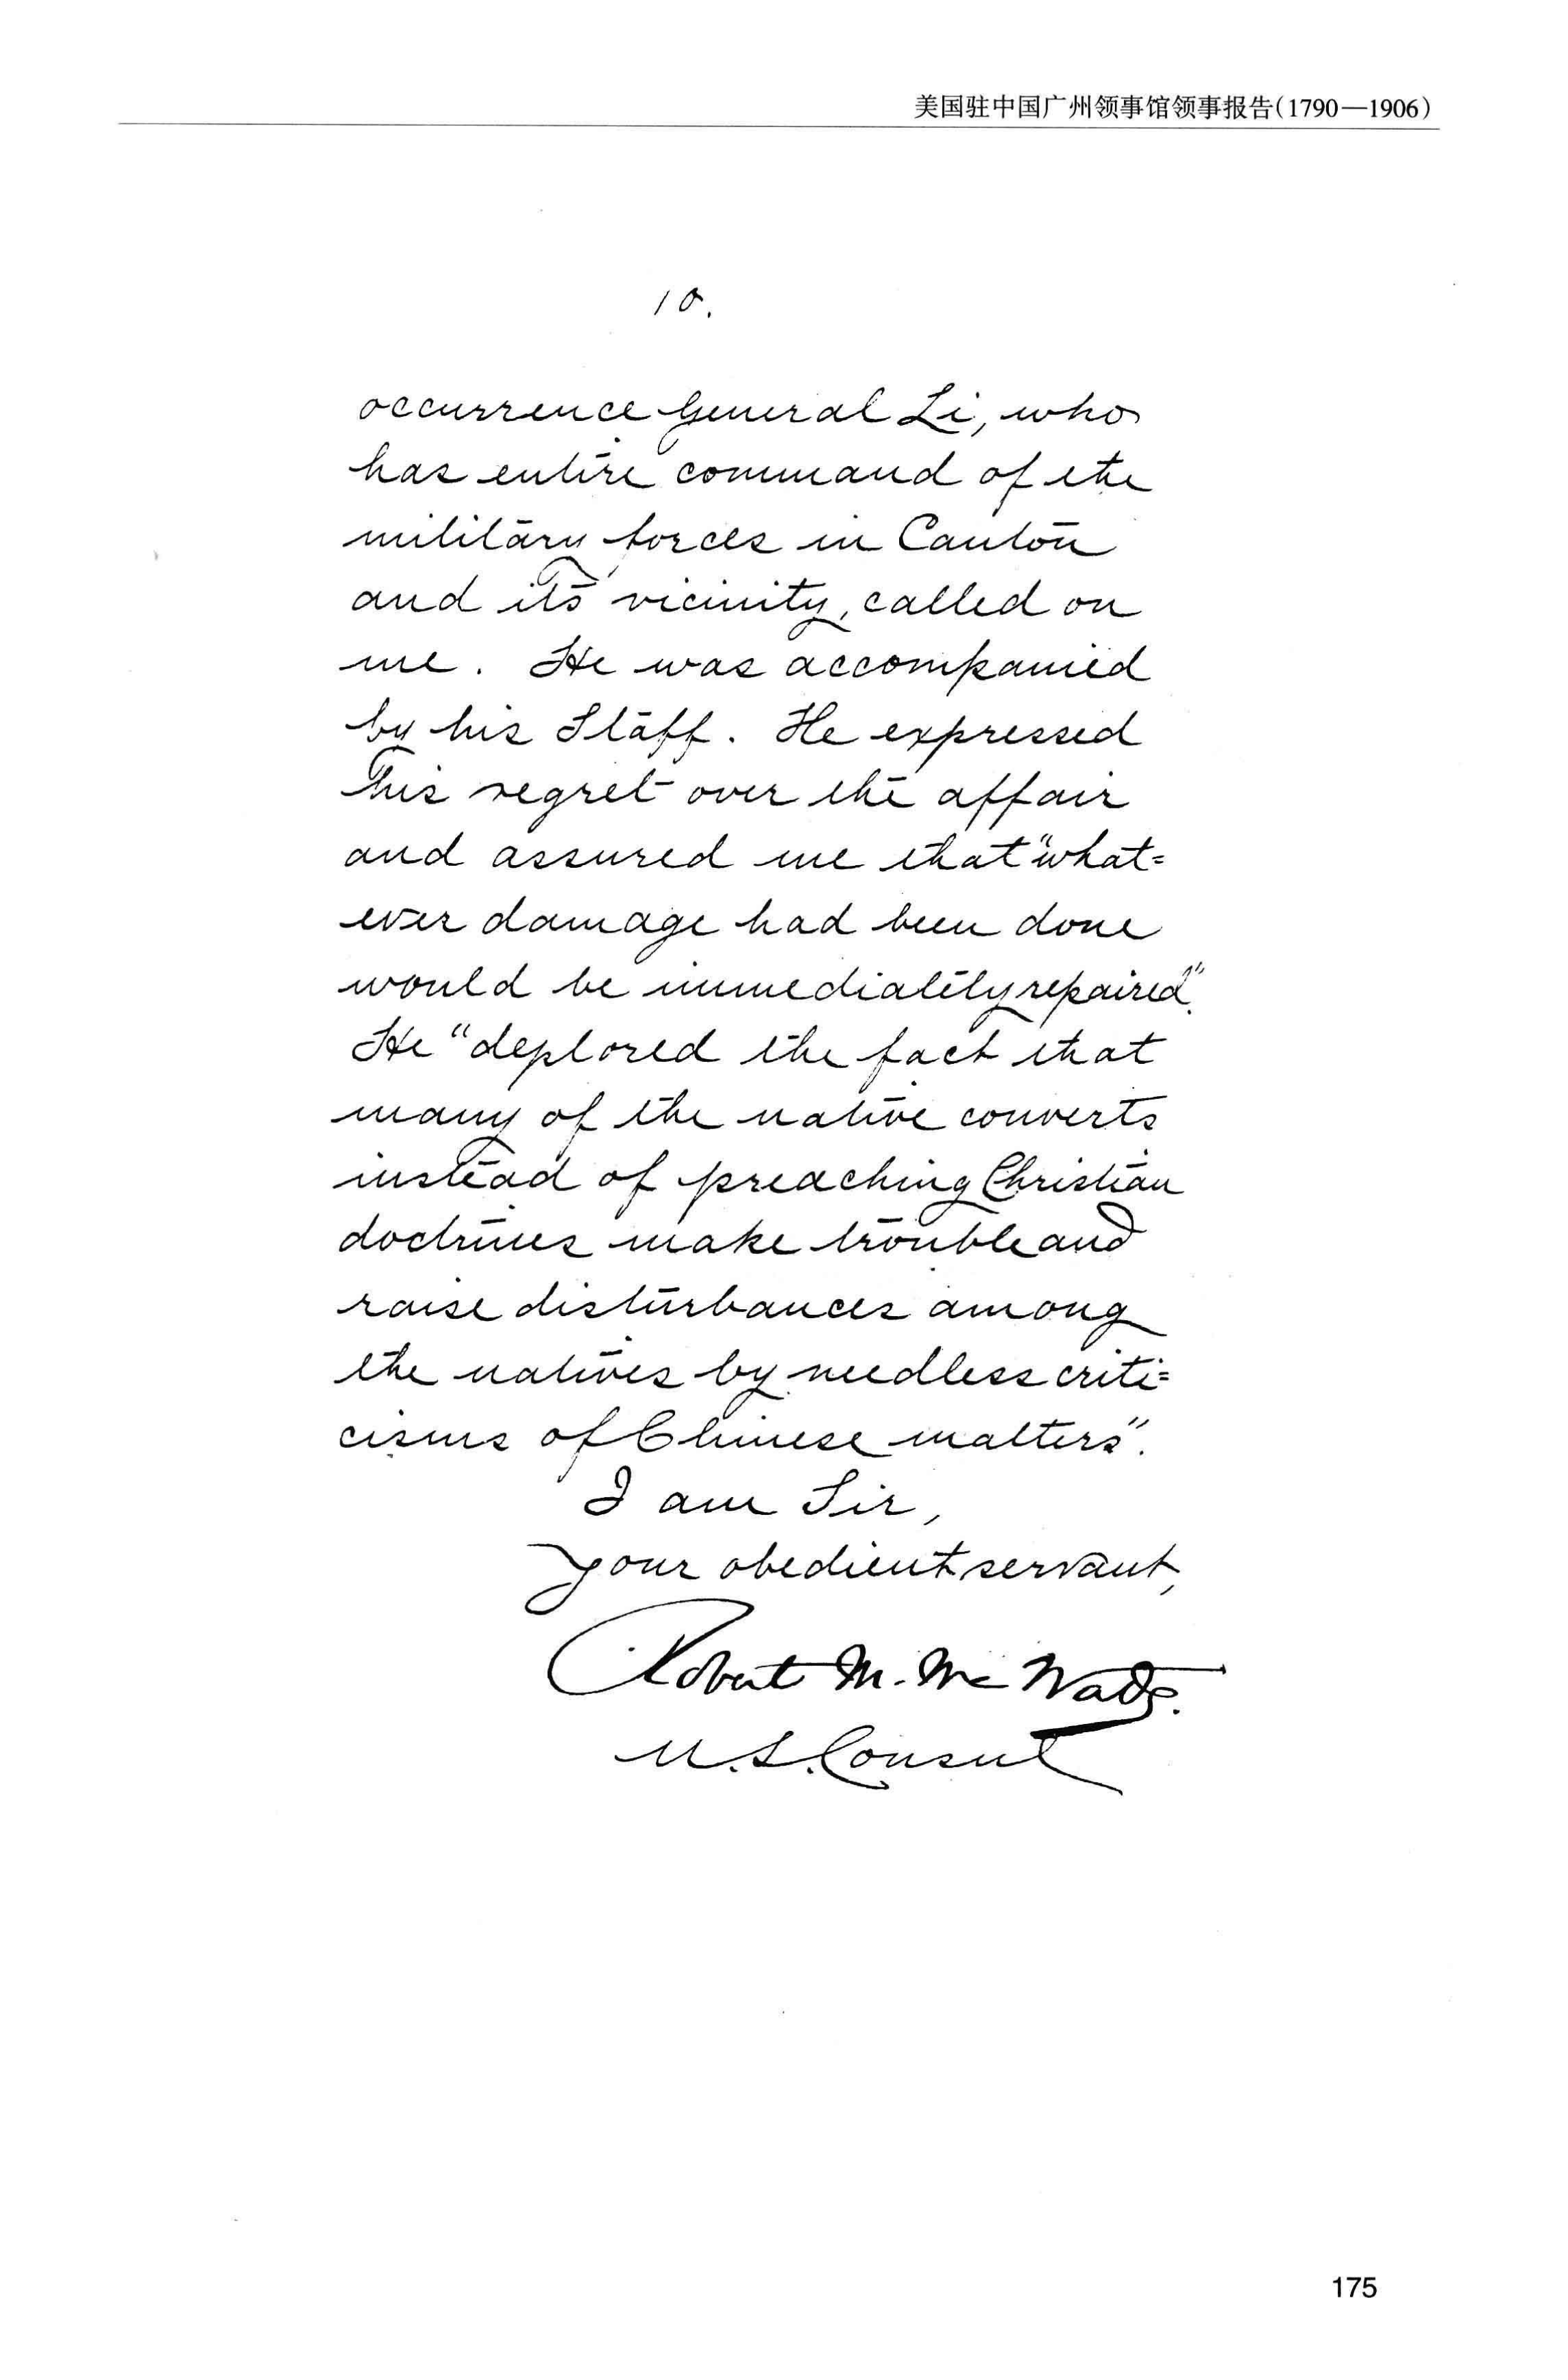 美国驻中国广州领事馆领事报告(1790—1906)
10.
occurrence General Li, who
has entire command of the
military forces in Canton
and its vicinity, called on
me. He was accompanied
by his Staff. He expressed
his regret over the affair
and assured me that "what=
ever damage had been done
would be immediately repaired".
He "deplored the fact that
many of the native converts
instead of preaching Christian
doctrines make trouble and
raise disturbances among
the natives by needless criti=
cisms of Chinese matters".
I am Sir,
Your obedient servant,
Robert M. McWade.
U.S. Consul
175